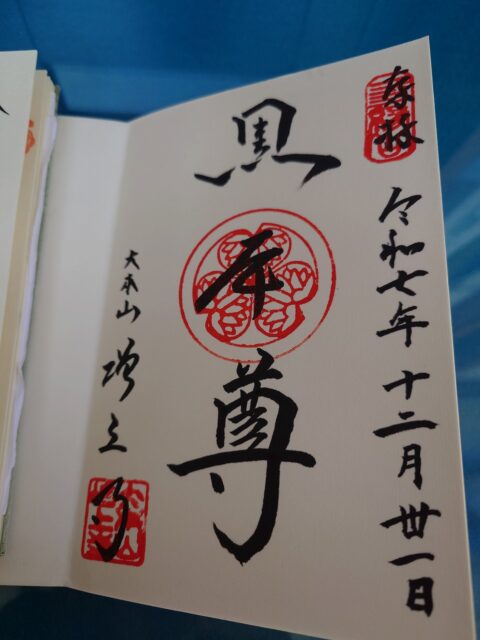 奉拝
令和七年 十二月 卅一日
黒本尊
大本山 増上寺